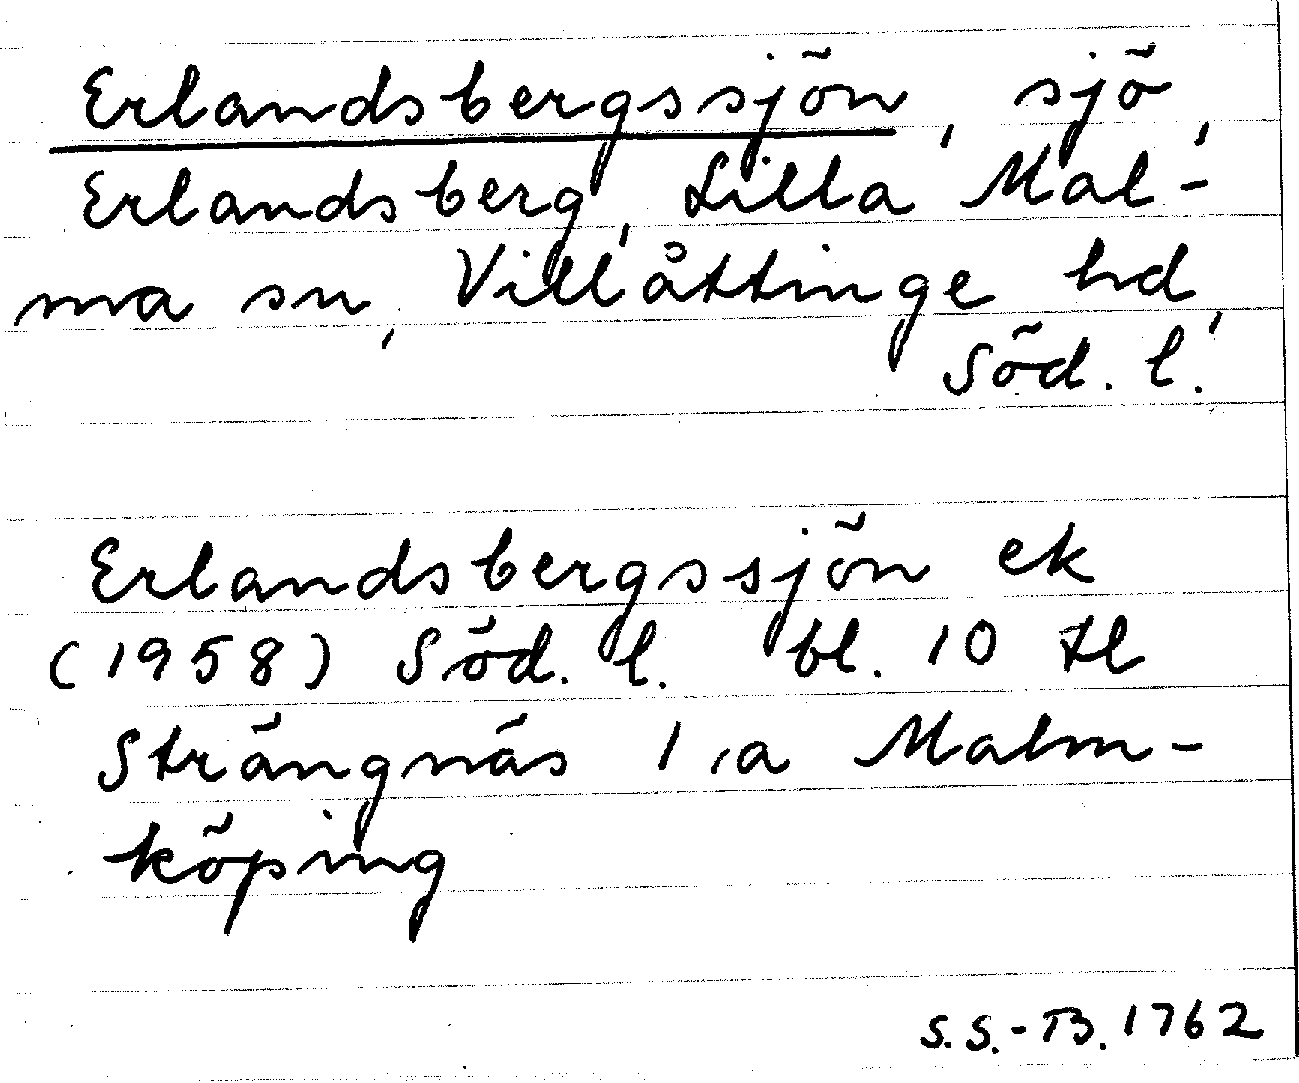 Erlandsbergssjön, sjö,
Erlandsberg, Lilla Mal-
ma sn, Villåttinge hd,
Söd. l.
Erlandsbergssjön ek
(1958) Söd. l. bl. 10 tl
Strängnäs 1, a Malm-
köping
S.S.-B. 1762